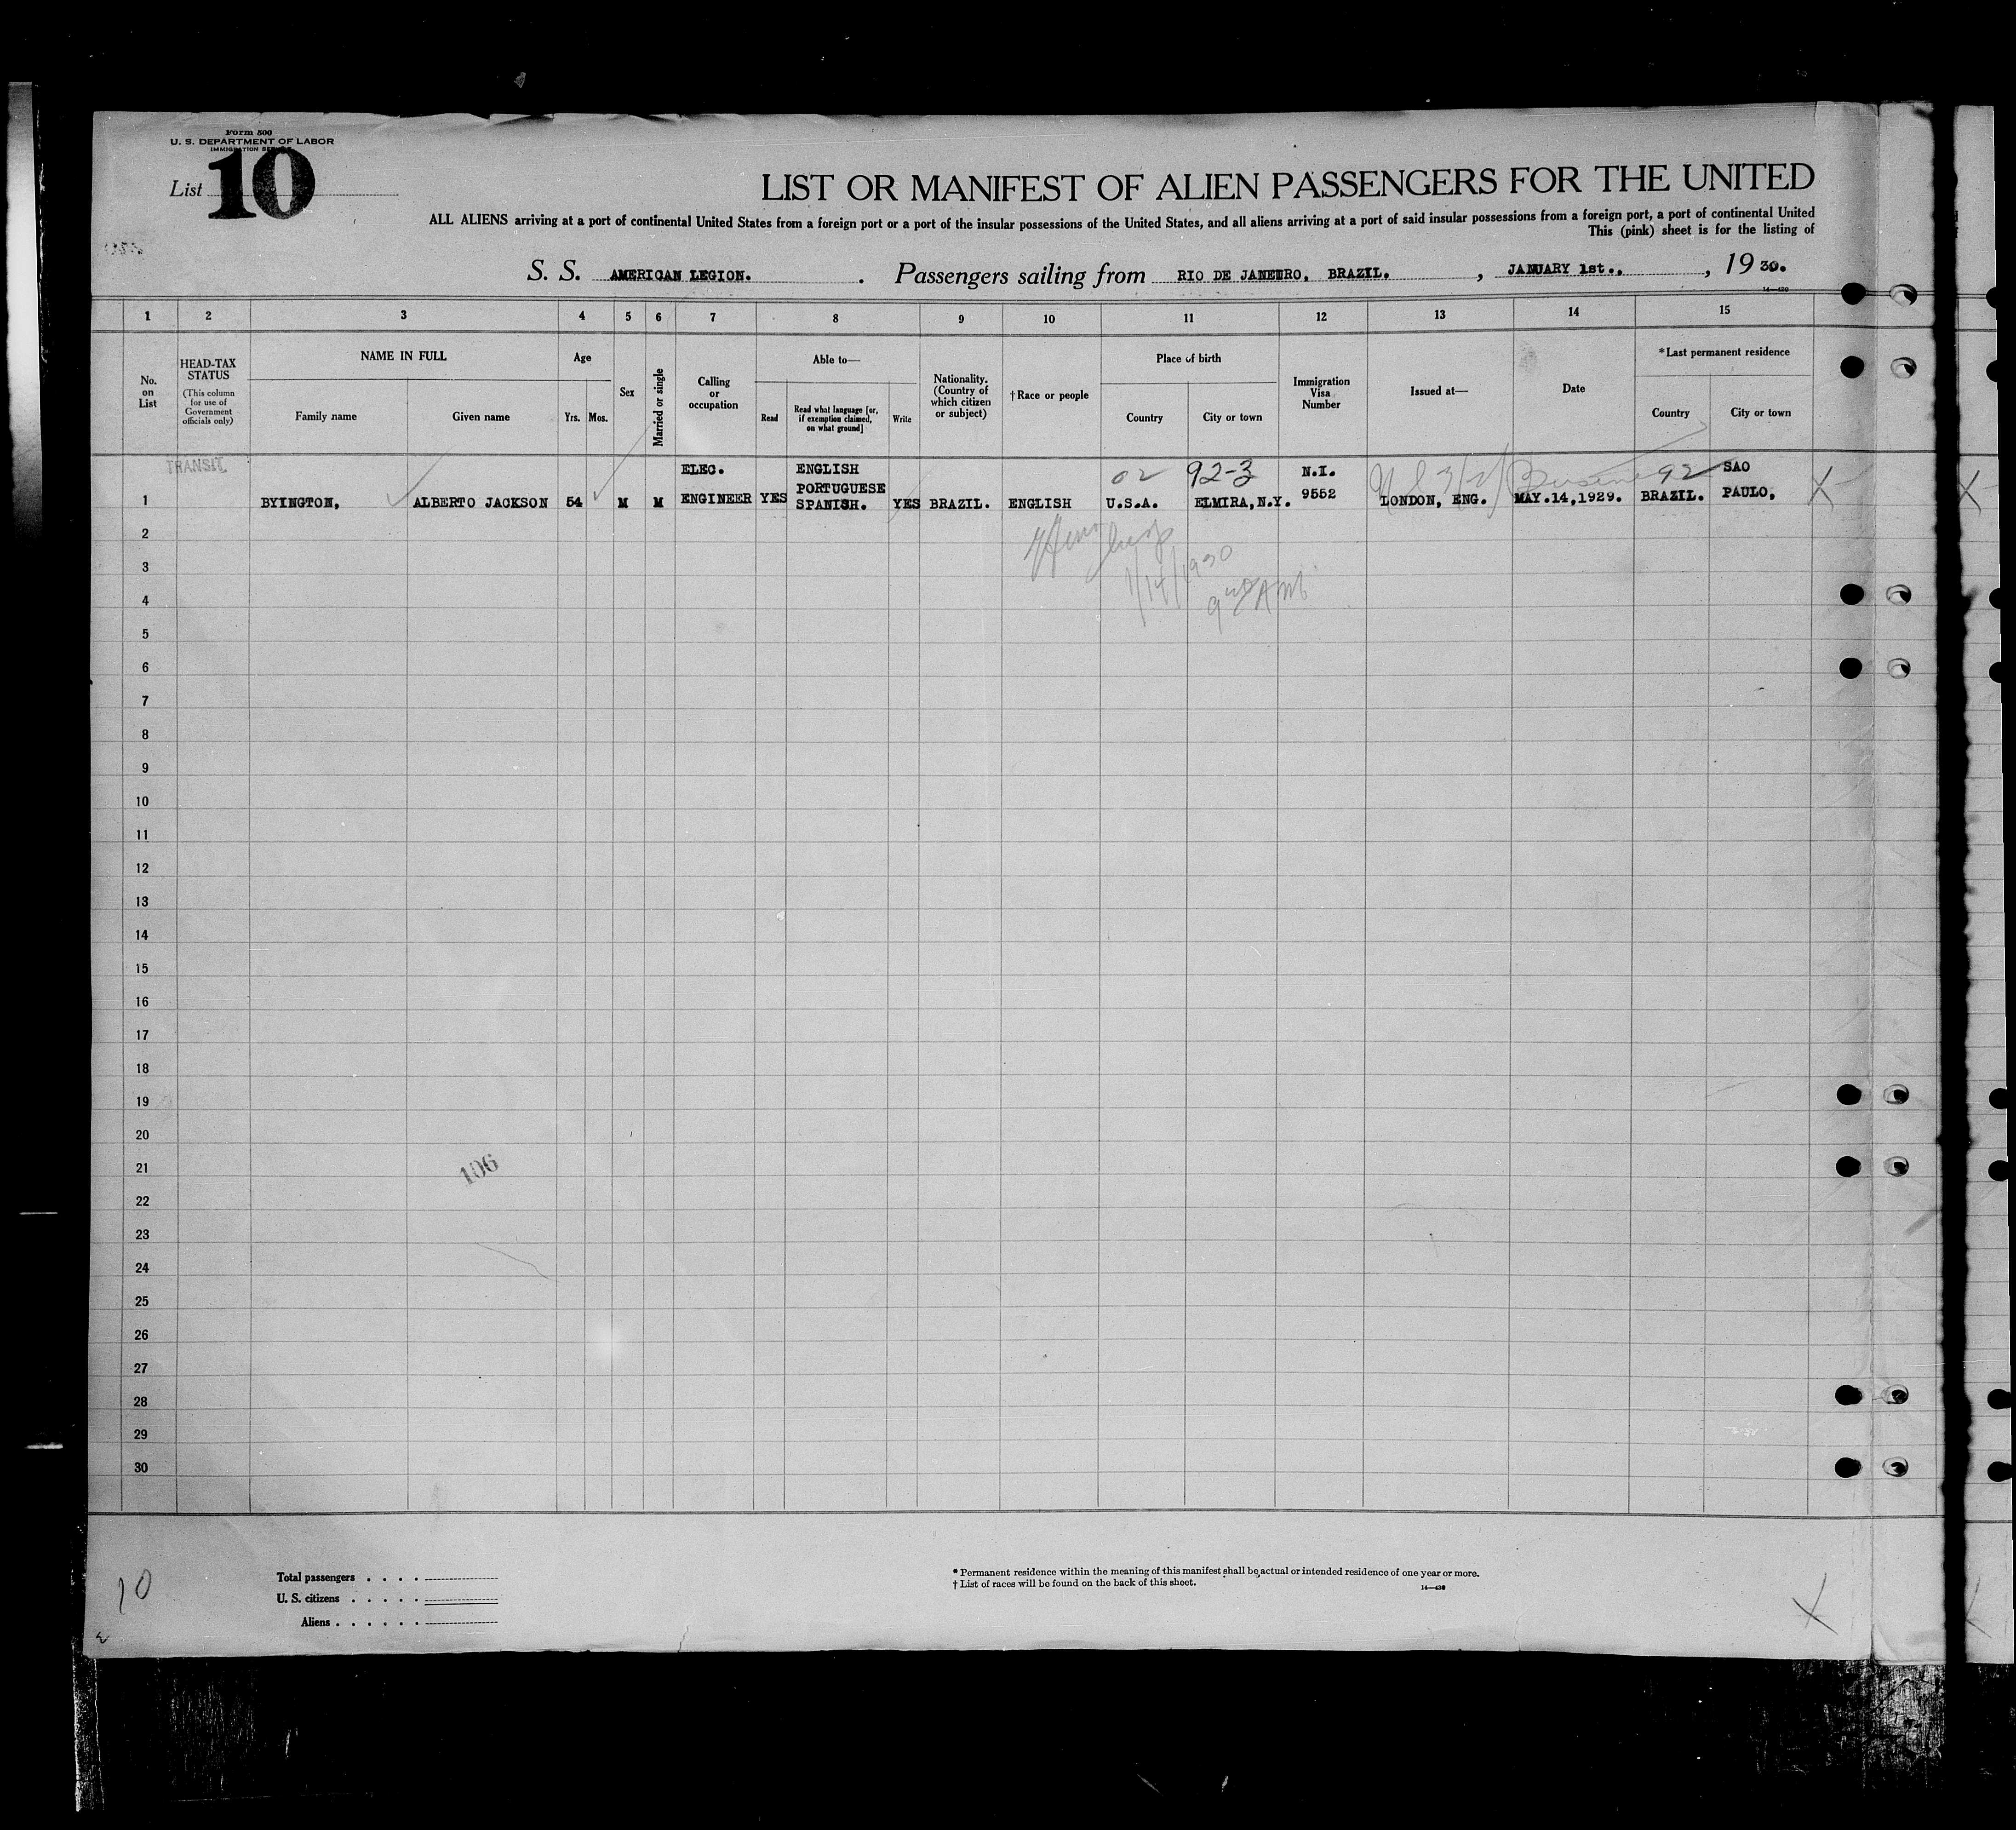 Form 500
U. S. DEPARTMENT OF LABOR
IMMIGRATION SERVICE
List 10
LIST OR MANIFEST OF ALIEN PASSENGERS FOR THE UNITED
ALL ALIENS arriving at a port of continental United States from a foreign port or a port of the insular possessions of the United States, and all aliens arriving at a port of said insular possessions from a foreign port, a port of continental United
This (pink) sheet is for the listing of
S. S. AMERICAN LEGION. . Passengers sailing from RIO DE JANEIRO, BRAZIL. , JANUARY 1st., , 19 30.
14—430
1 2 3 4 5 6 7 8 9 10 11 12 13 14 15
No. on List
HEAD-TAX STATUS
(This column for use of Government officials only)
NAME IN FULL
Family name Given name
Age
Yrs. Mos.
Sex
Married or single
Calling or occupation
Able to—
Read
Read what language [or, if exemption claimed, on what ground]
Write
Nationality. (Country of which citizen or subject)
†Race or people
Place of birth
Country City or town
Immigration Visa Number
Issued at—
Date
*Last permanent residence
Country City or town
TRANSIT
ELEC. ENGLISH 02 92-3 N.I. 92 SAO
1 BYINGTON, ALBERTO JACKSON 54 M M ENGINEER YES PORTUGUESE SPANISH. YES BRAZIL. ENGLISH U.S.A. ELMIRA, N.Y. 9552 LONDON, ENG. MAY.14,1929. BRAZIL. PAULO, X X
2
1/14/1930
3
4
5
6
7
8
9
10
11
12
13
14
15
16
17
18
19
20
21
106
22
23
24
25
26
27
28
29
30
10
Total passengers . . . .
U. S. citizens . . . . .
Aliens . . . . . .
* Permanent residence within the meaning of this manifest shall be actual or intended residence of one year or more.
† List of races will be found on the back of this sheet.
X